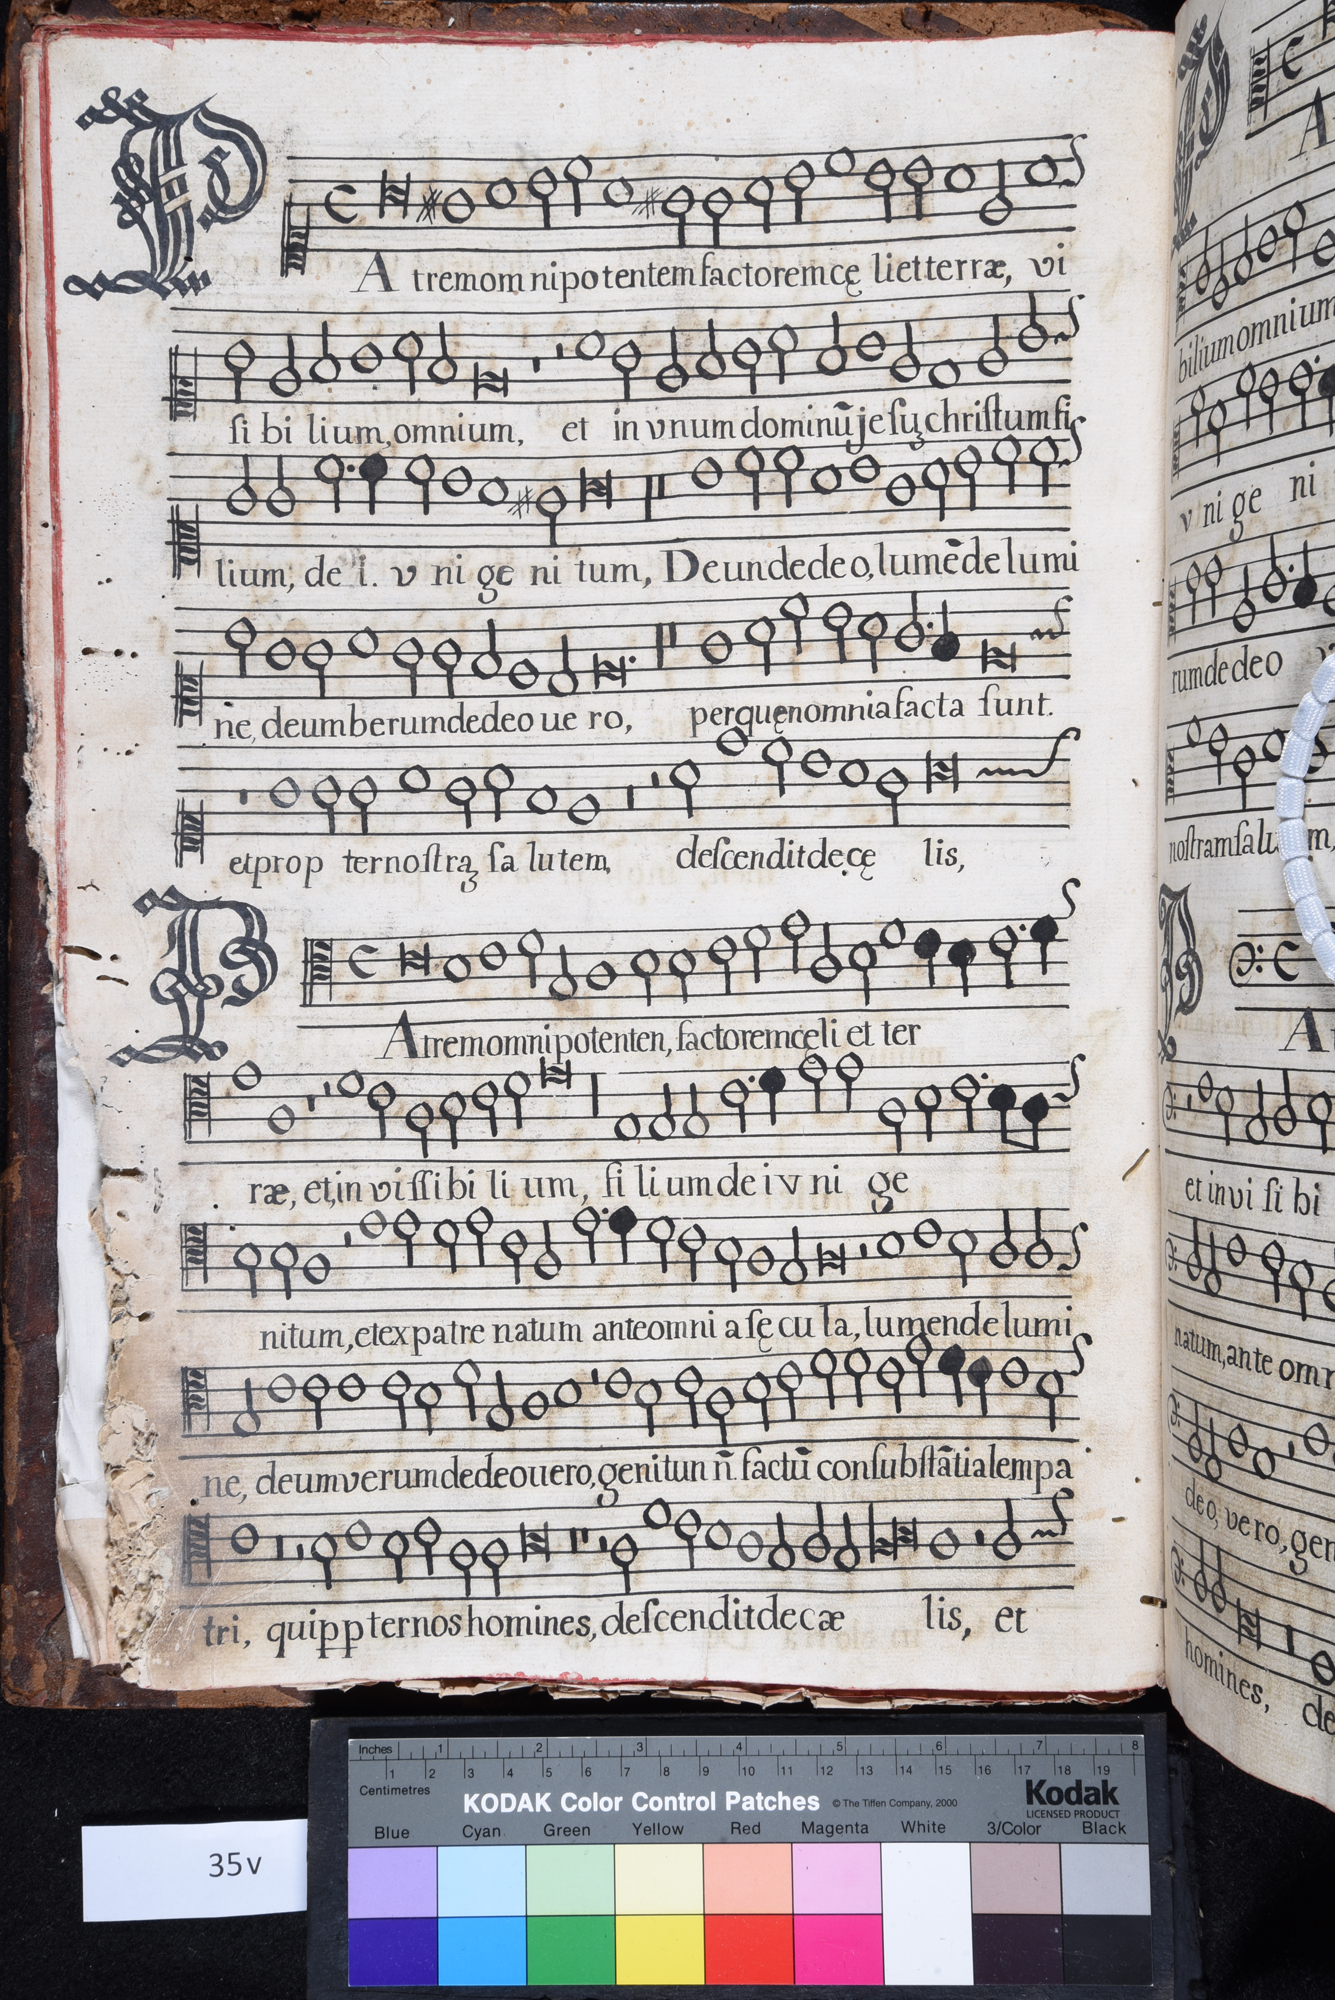 PA tremom nipo tentem factorem cę li et terræ, vi
si bi lium, omnium, et in vnum dominū jesuʒ christum fi
lium, de i. v ni ge ni tum, Deum de deo, lumē de lumi
ne, deum berum de deo ue ro, per quęn omnia facta sunt.
et prop ter nostraʒ sa lutem, descendit de cę lis,
PAtrem omnipotenten, factorem cęli et ter
ræ, et, in vissi bi li um, fi li um de i v ni ge
nitum, et ex patre natum ante omni a sę cu la, lumen de lumi
ne, deum verum de deo uero, genitun ñ. factū consubstātialem pa
tri, qui pp ter nos homines, descendit de cæ lis, et
A
bilium omnium
v ni ge ni
rum de deo
nostram salu m,
A
et in vi si bi
natum, ante om
deo, ve ro, gen
homines, de
Inches 1 2 3 4 5 6 7 8
1 2 3 4 5 6 7 8 9 10 11 12 13 14 15 16 17 18 19
Centimetres
KODAK Color Control Patches © The Tiffen Company, 2000
Kodak
LICENSED PRODUCT
Blue Cyan Green Yellow Red Magenta White 3/Color Black
35v